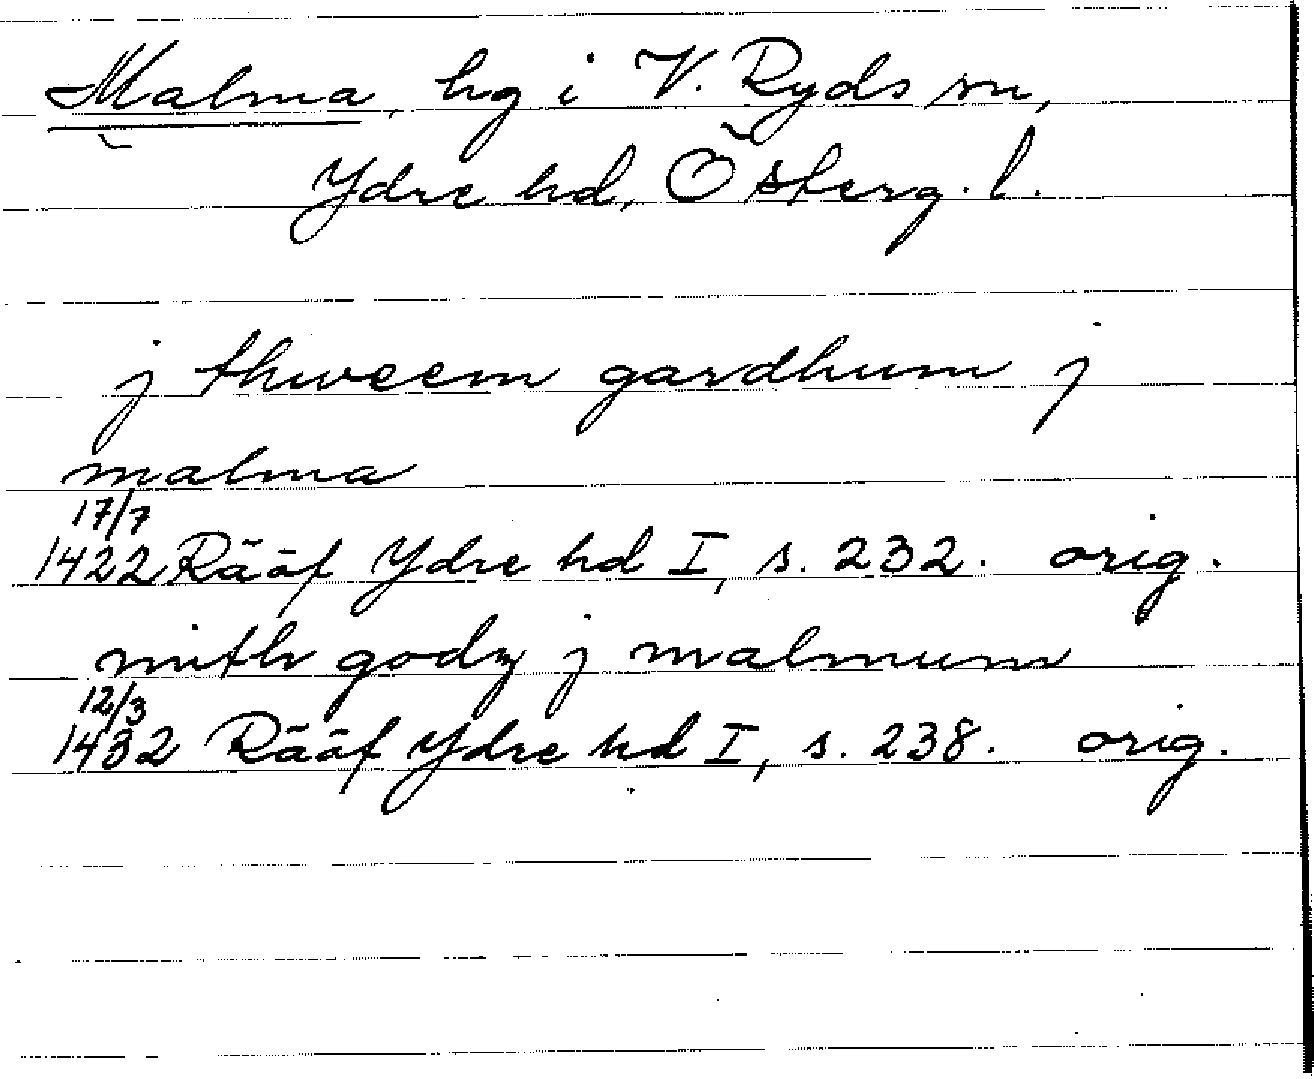 Malma, hg i V. Ryds sn,
Ydre hd, Österg. l.
j thweem gardhum j
malma
17/7
1422 Rääf Ydre hd I, s. 232. orig.
mith godz j malmum
12/3
1432 Rääf Ydre hd I, s. 238. orig.